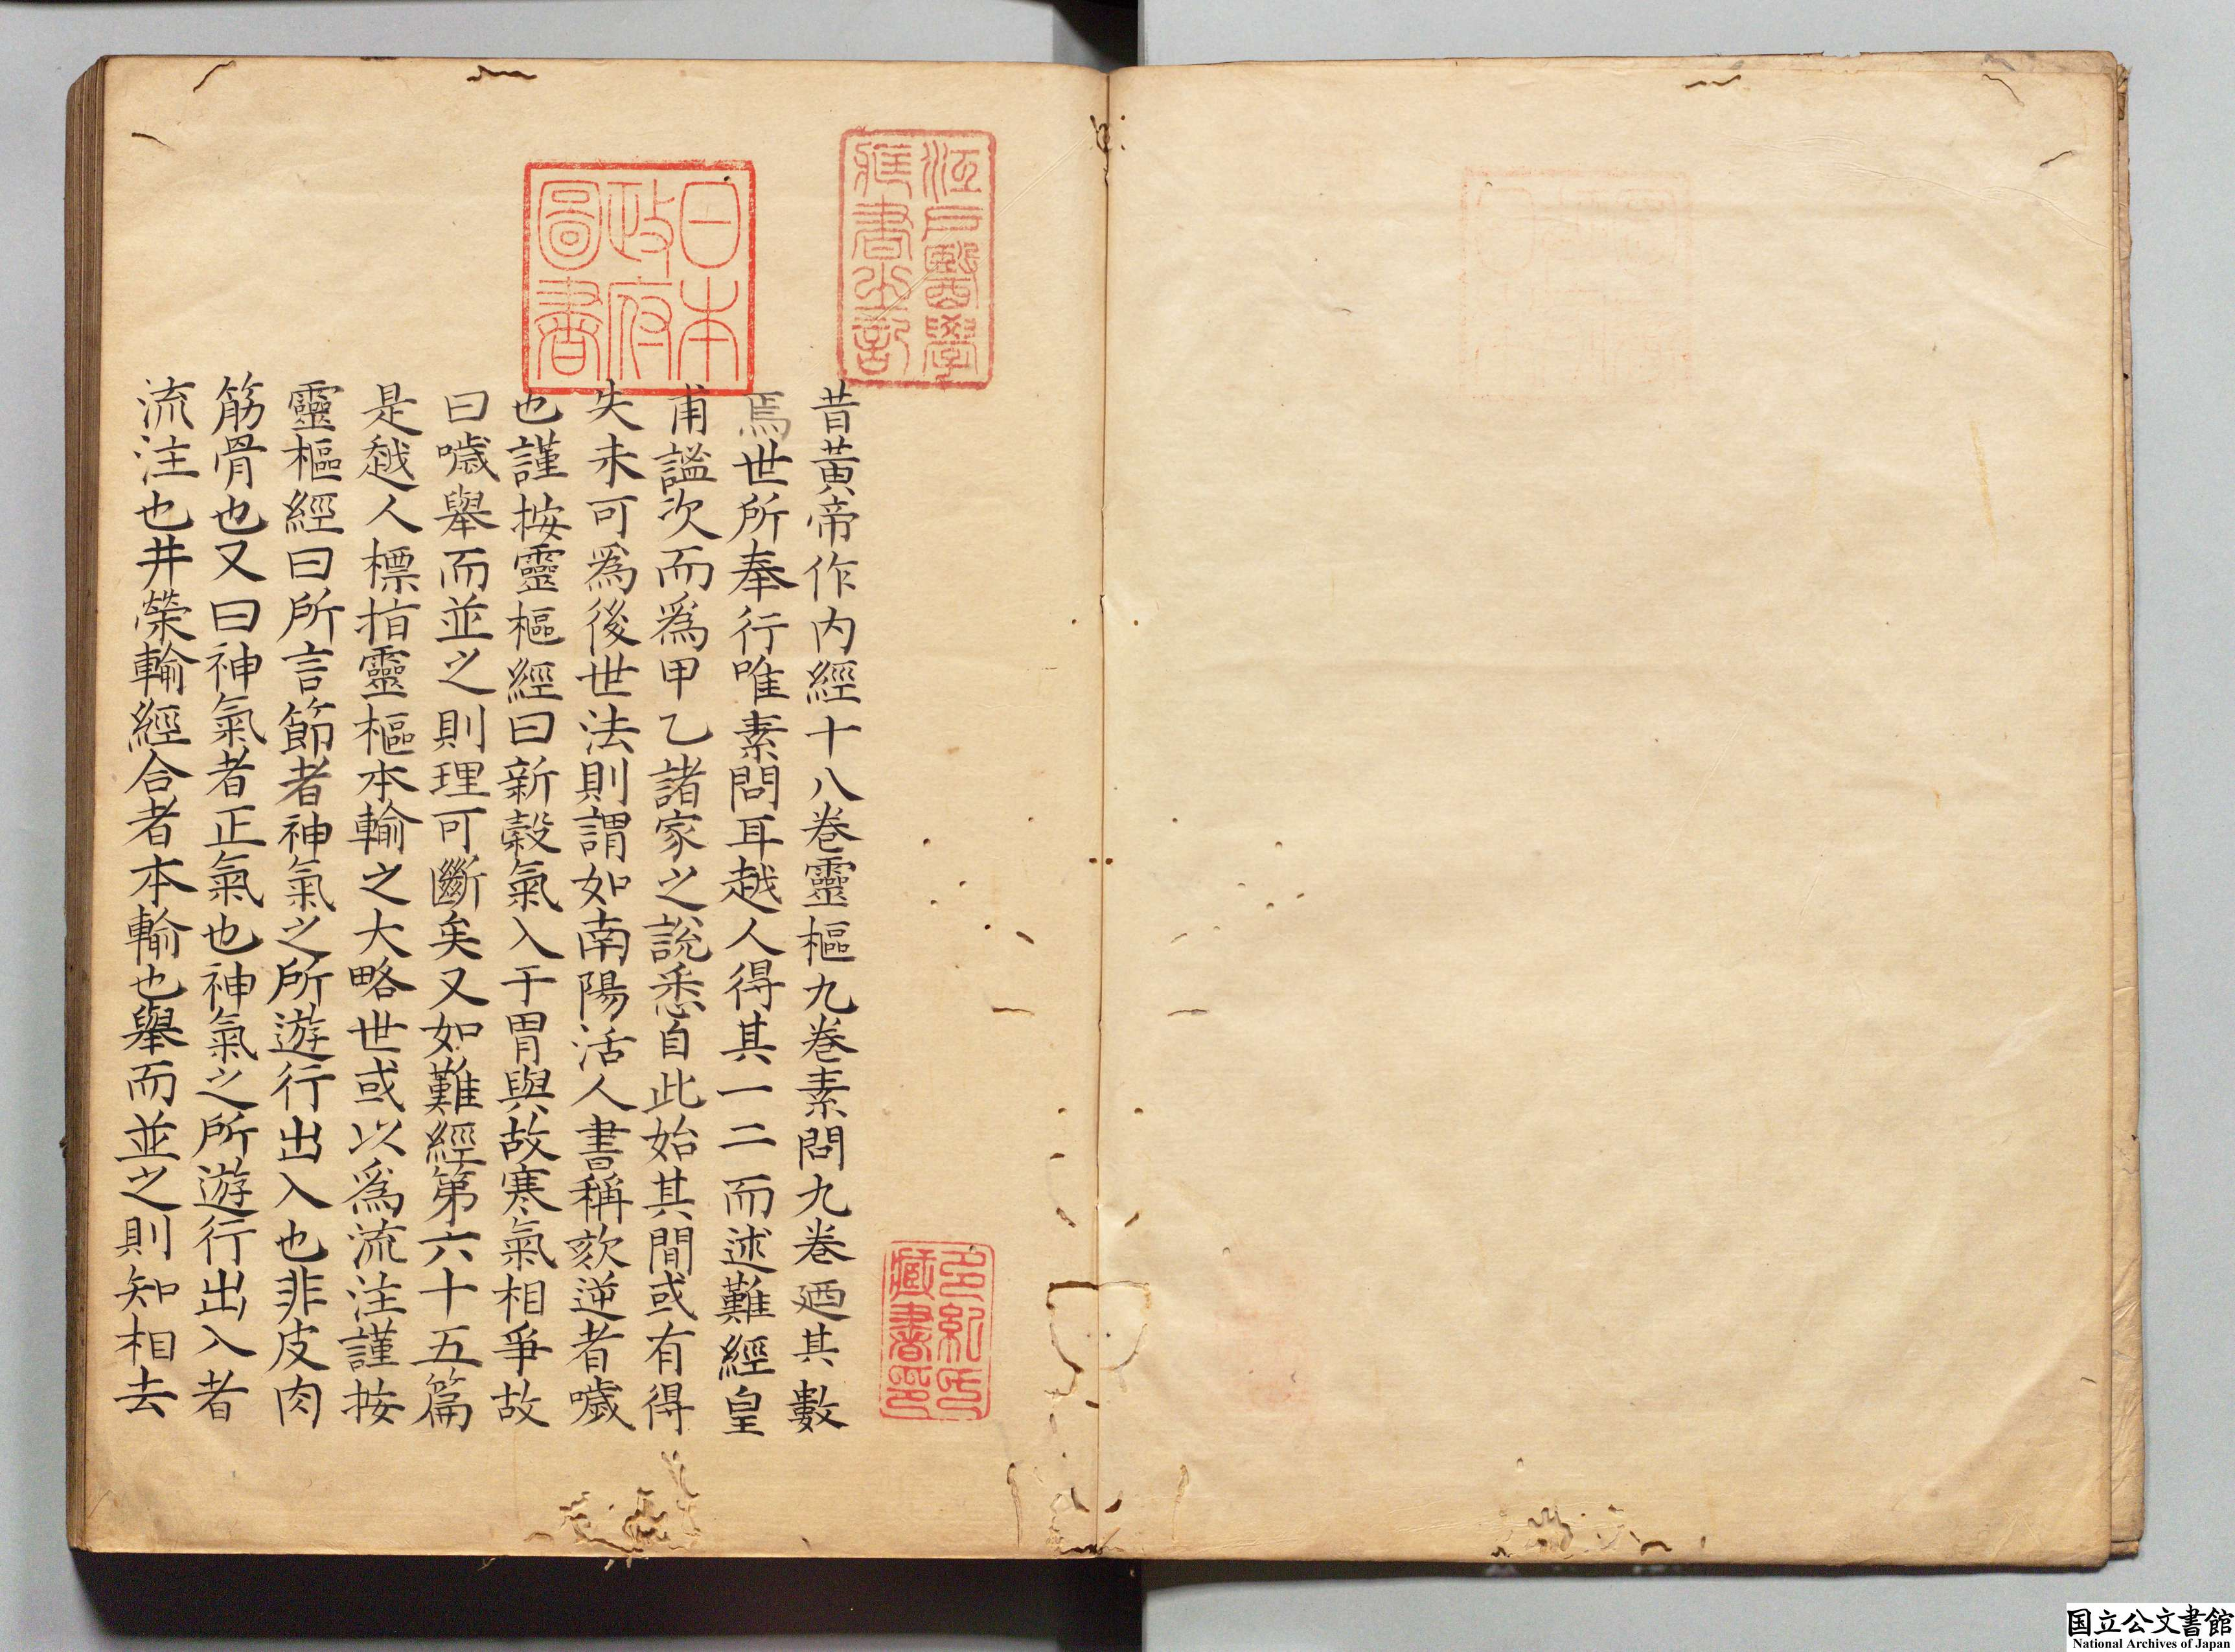 昔黃帝作内經十八卷靈樞九卷素問九卷廼其數
焉世所奉行唯素問耳越人得其一二而述難經皇
甫謐次而爲甲乙諸家之說悉自此始其間或有得
失未可爲後世法則謂如南陽活人書稱欬逆者噦
也謹按靈樞經曰新穀氣入于胃與故寒氣相爭故
曰噦舉而並之則理可斷矣又如難經第六十五篇
是越人標指靈樞本輸之大略世或以爲流注謹按
靈樞經曰所言節者神氣之所遊行出入也非皮肉
筋骨也又曰神氣者正氣也神氣之所遊行出入者
流注也井滎輸經合者本輸也舉而並之則知相去
江戸醫學
藏書之記
日本
政府
圖書
多紀氏
藏書印
国立公文書館
National Archives of Japan